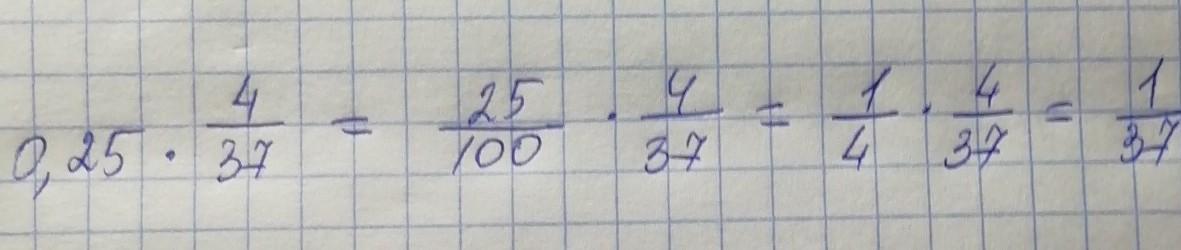 0,25 · 4/37 = 25/100 · 4/37 = 1/4 · 4/37 = 1/37